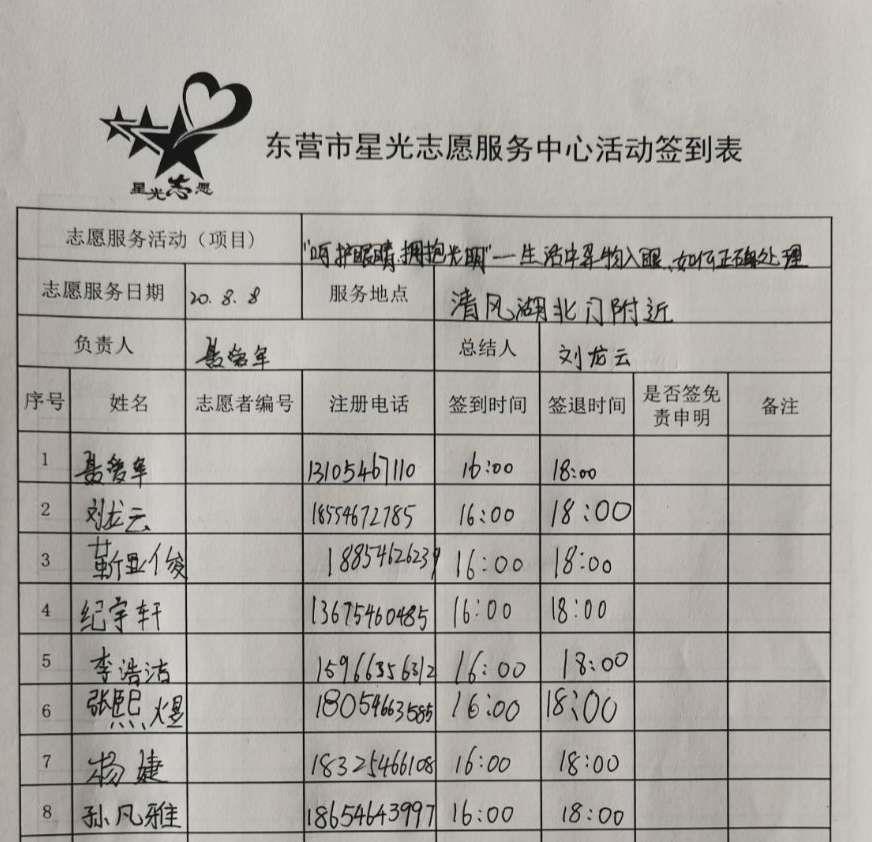 星光志愿
东营市星光志愿服务中心活动签到表
志愿服务活动（项目） "呵护眼睛.拥抱光明"—生活中异物入眼、如何正确处理
志愿服务日期 20.8.8 服务地点 清风湖北门附近
负责人 总结人 刘龙云
序号 姓名 志愿者编号 注册电话 签到时间 签退时间 是否签免责申明 备注
1 13105467110 16:00 18:00
2 刘龙云 18554672785 16:00 18:00
3 靳亚俊 18854626239 16:00 18:00
4 纪宇轩 13675460485 16:00 18:00
5 李浩洁 15966356312 16:00 18:00
6 张熙煜 18054663585 16:00 18:00
7 杨婕 18325466108 16:00 18:00
8 孙凡雅 18654643997 16:00 18:00